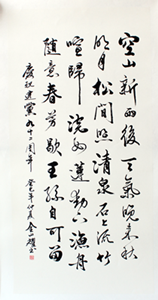 空山新雨後天氣晚來秋
明月松間照清泉石上流竹
喧歸浣女蓮動下漁舟
隨意春芳歇王孫自可留
慶祝建黨九十二周年 癸巳年仲夏